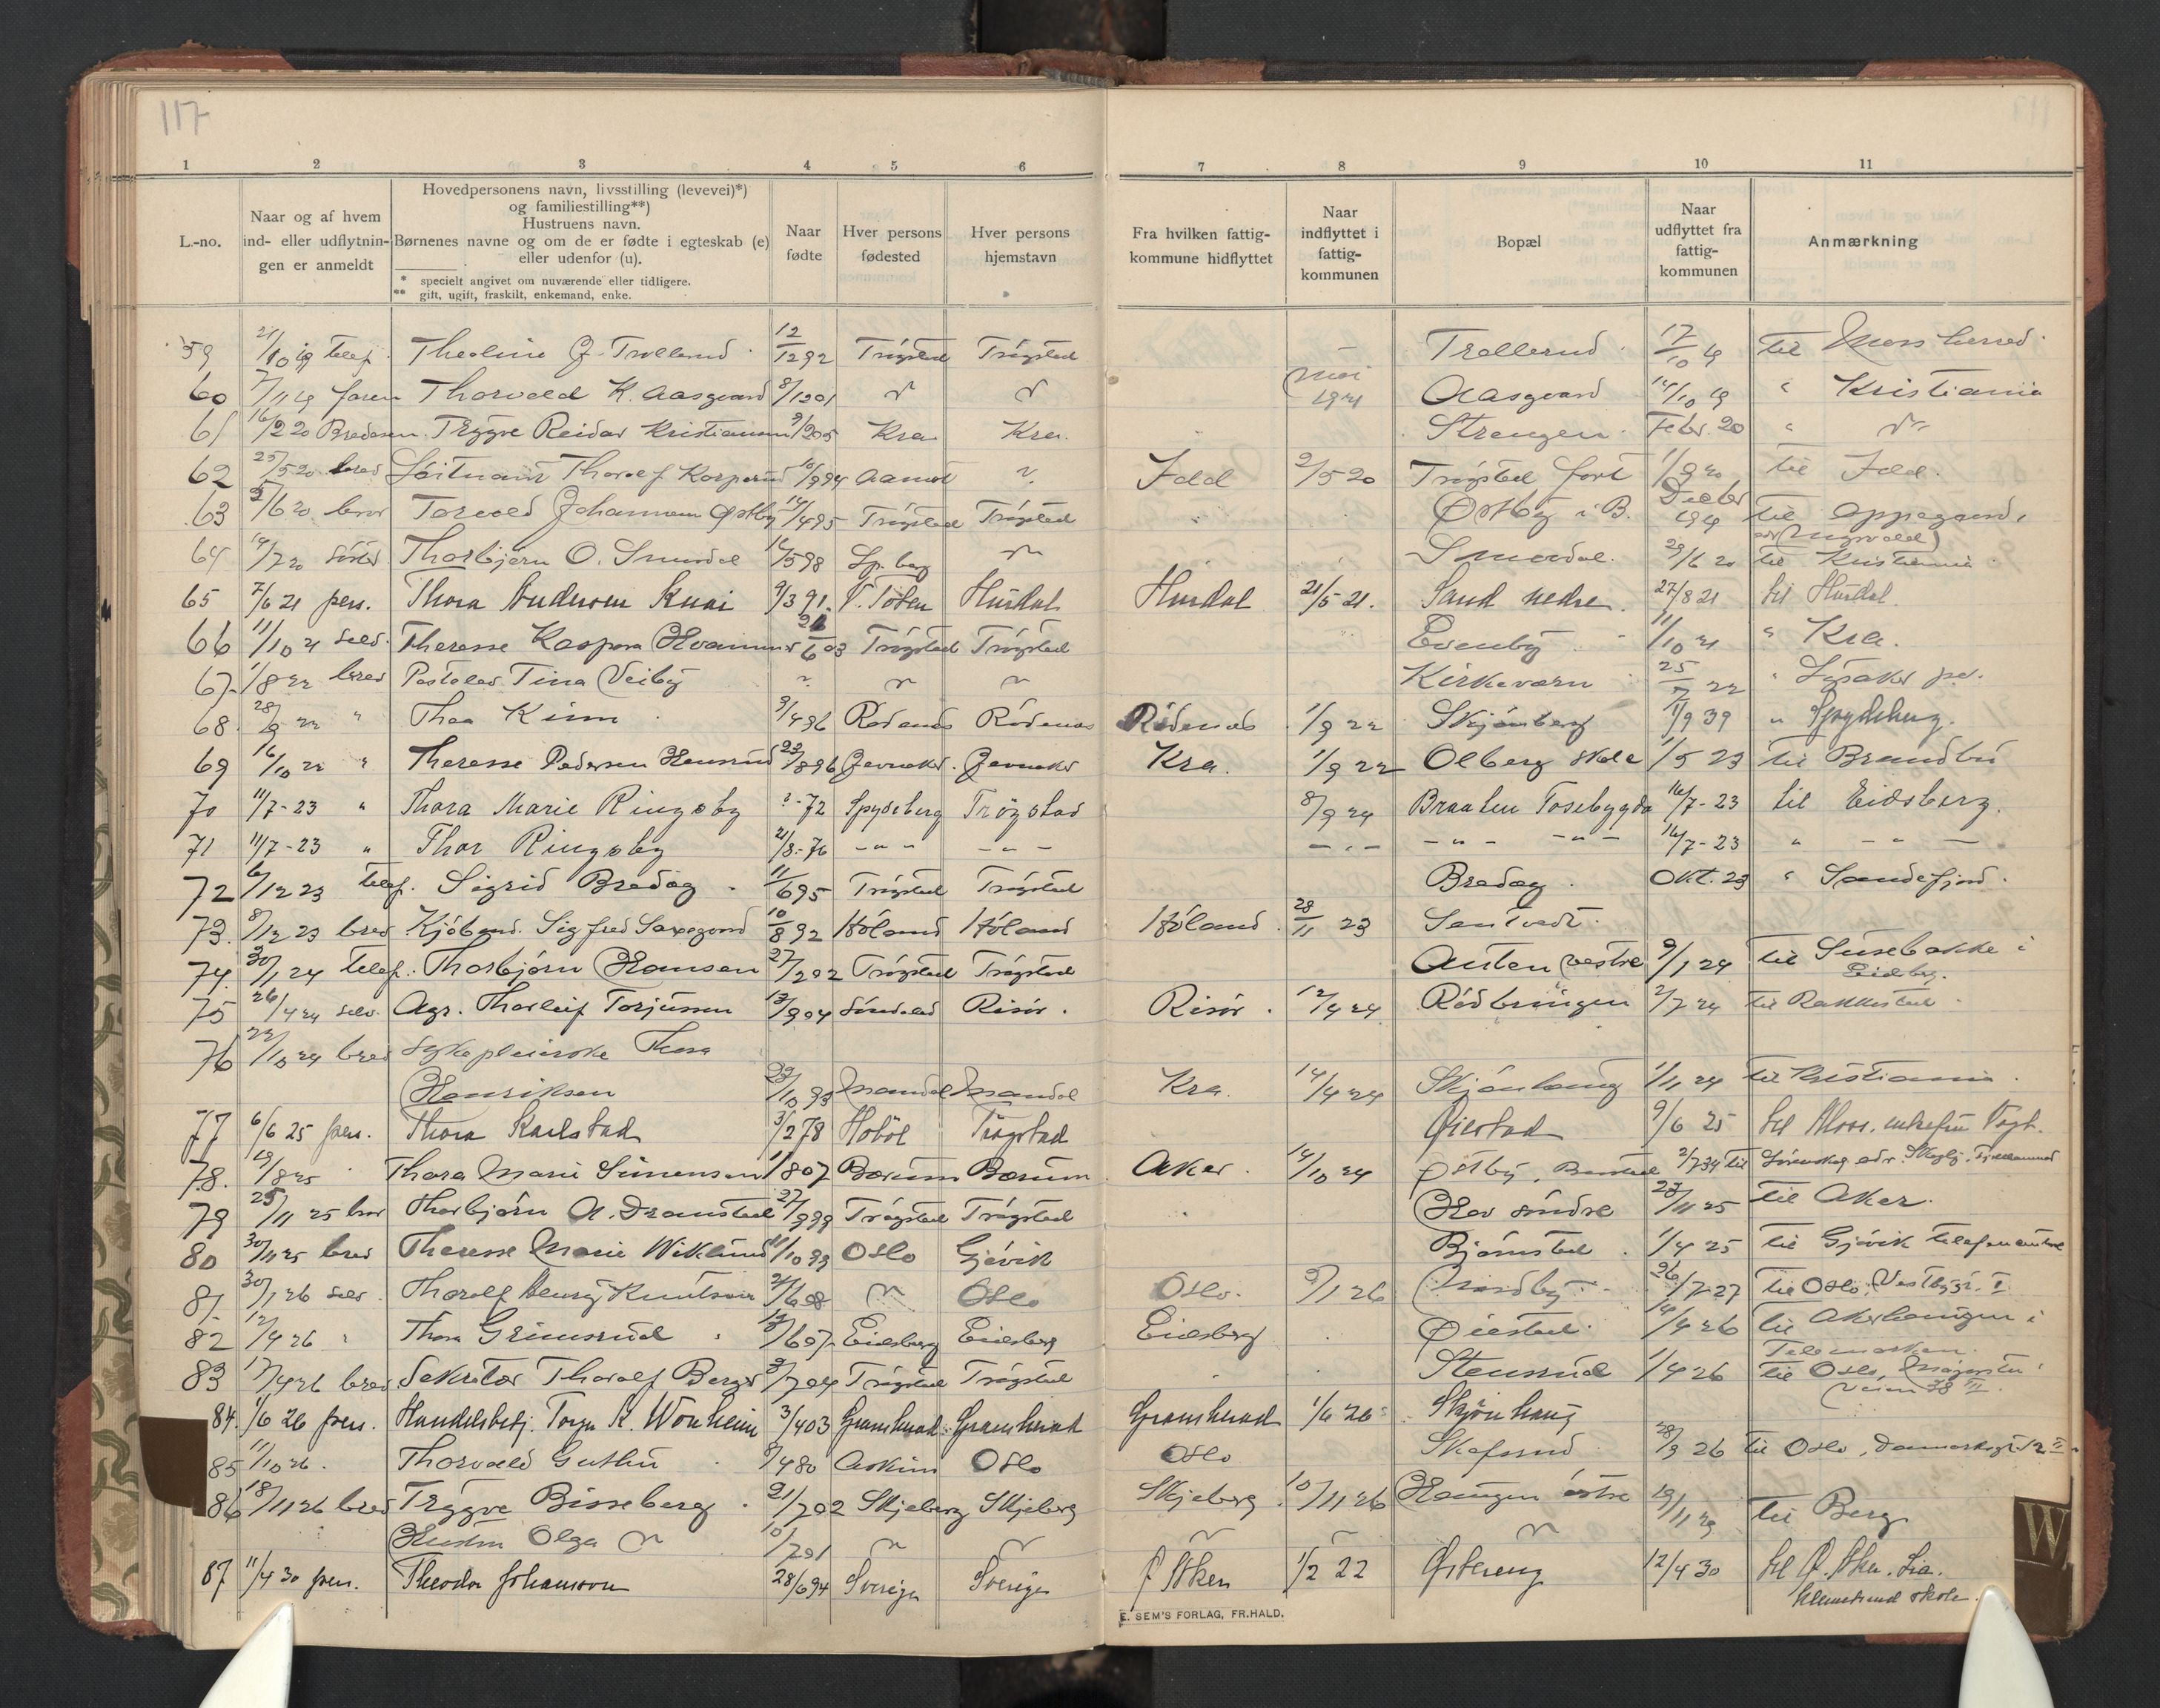 117
1 2 3 4 5 6 7 8 9 10 11
L.-no.
Naar og af hvem
ind- eller udflytnin-
gen er anmeldt
Hovedpersonens navn, livsstilling (levevei)*)
og familiestilling**)
Hustruens navn.
Børnenes navne og om de er fødte i egteskab (e)
eller udenfor (u).
* specielt angivet om nuværende eller tidligere.
** gift, ugift, fraskilt, enkemand, enke.
Naar
fødte
Hver persons
fødested
Hver persons
hjemstavn
Fra hvilken fattig-
kommune hidflyttet
Naar
indflyttet i
fattig-
kommunen
Bopæl
Naar
udflyttet fra
fattig-
kommunen
Anmærkning
59 21/10 19 telef. Theoline J. Trollerud 12/12 92 Trøgstad Trøgstad — Trollerud 17/10 19 til Moss herred
60 7/11 19 faren Thorvald K. Aasgaard 8/1 901 " " Mai 1921 Aasgaard 14/10 19 " Kristiania
61 16/2 20 Bredesen Trygve Reidar Kristiansen 9/2 05 Kra Kra. Strengen Febr. 20 " "
62 25/5 20 brev Løitnant Thorolf 10/9 94 Aamot " Idd 2/5 20 Trøgstad fort 1/9 20 til Idd.
63 /6 20 bror Torvald Johannesen Østby 14/4 95 Trøgstad Trøgstad Østby i B. Decbr 1919 til Oppegaard,
64 /7 20 søster Thorbjørn O. Smedal /5 98 Sp. berg " Smedal. 29/6 20 til Kristiania
65 7/6 21 pers. Thora Andersen Knai 9/3 91. V. Toten Hurdal Hurdal 21/5 21. Sand nedre 27/8 21 til Hurdal.
66 11/10 21 selv. Therese Kaspara 21/6 03 Trøgstad Trøgstad Evenby 11/10 21 " Kra.
67. 1/8 22 brev Postelev Tina Veiby " " " Kirkevarn 25/7 22 " Lysaker
68. 28/9 22 " Thea Kinn 9/4 96 Rødenes Rødenes Rødenes 1/9 22 Skjønhaug 11/9 39 " Spydeberg.
69 16/10 22 " Therese Pedersen 23/8 96 Jevnaker. Jevnaker Kra. 1/9 22 Olberg skole 1/5 23 til Brandbu
70 11/7-23 " Thora Marie Ringsby ?-72 Spydeberg Trøgstad 8/9 24 Braaten Tosebygda 16/7-23 til Eidsberg.
71 11/7-23 " Thor Ringsby 21/8.-76 — " — — " — — " — — " — — " — 16/7-23 " — " —
72 6/12 23 telef. Sigrid Bredag 11/6 95 Trøgstad Trøgstad Bredag Okt. 23 " Sandefjord.
73. 8/12 23 brev Kjøbmd. Sigfred Saxegaard 10/8 92 Høland Høland Høland 28/11 23 Sentvedt.
74. 30/1 24 telef. Thorbjørn Hansen 27/2 02 Trøgstad Trøgstad Auten vestre 9/1 24 til Susebakke i
Eidsberg.
75 26/4 24 selv. Agr. Thorleif Torjussen 13/9 04 Søndeled Risør. Risør. 12/4 24 Rødbringen 2/7 24 til Rakkestad
76 22/10 24 brev Sykepleierske Thora
Henriksen 23/10 93 Mandal Mandal Kra. 14/4 24 Skjønhaug 1/11 24 til Kristiania.
77 6/6 25 pers. Thora Karlstad 3/2 78 Hobøl Trøgstad Øiestad 9/6 25 til Moss. enkefru Vogt.
78. 19/8 25 Thora Marie Simensen 1/8 07 Bærum Bærum Aker. 14/10 24 Østby, 2/7 34 til
79 25/11 25 bror Thorbjørn A. Dramstad 27/9 99 Trøgstad Trøgstad Hov søndre 27/11 25 til Aker.
80 30/11 25 brev Therese Marie Wiklund 11/10 99 Oslo Gjøvik Bjørnstad 1/4 25 til Gjøvik telefoncentral
81. 30/1 26 selv. Thorolf Henry Knutsen 24/6 08 " Oslo Oslo. 9/1 26 Nordby 26/7 27 til Oslo, Vestbygt. I.
82 12/4 26 " Thora Grimsrud /6 07 Eidsberg Eidsberg Eidsberg Øiestad 14/4 26 til i
Telemarken.
83 17/4 26 brev Sekretær Thoralf Berger /7 04 Trøgstad Trøgstad Stensrud 1/4 26 til Oslo, Majorstu
veien 38 II.
84. 1/6 26 pers. Handelsbetj. K. Wonheim 3/4 03 Gransherad Gransherad Gransherad 1/6 26 Skjønhaug
85 11/10 26. Thorvald Guthu 8/4 80 Askim Oslo Oslo Skofsrud 28/9 26 til Oslo, Danmarksgt 12 II
86 18/11 26 brev Trygve Bisseberg 21/7 02 Skjeberg Skjeberg Skjeberg 10/11 26 Haugen østre 19/11 29 til Berg
Hustru Olga " 10/7 01 " " " " "
87 11/4 30 pers. Theodor Johansson 28/6 94 Sverige Sverige Ø. Aker 1/2 22 Østereng 12/4 30 til Ø. Aker. Lia.
Klemetsrud skole
E. SEM'S FORLAG, FR.HALD.
W